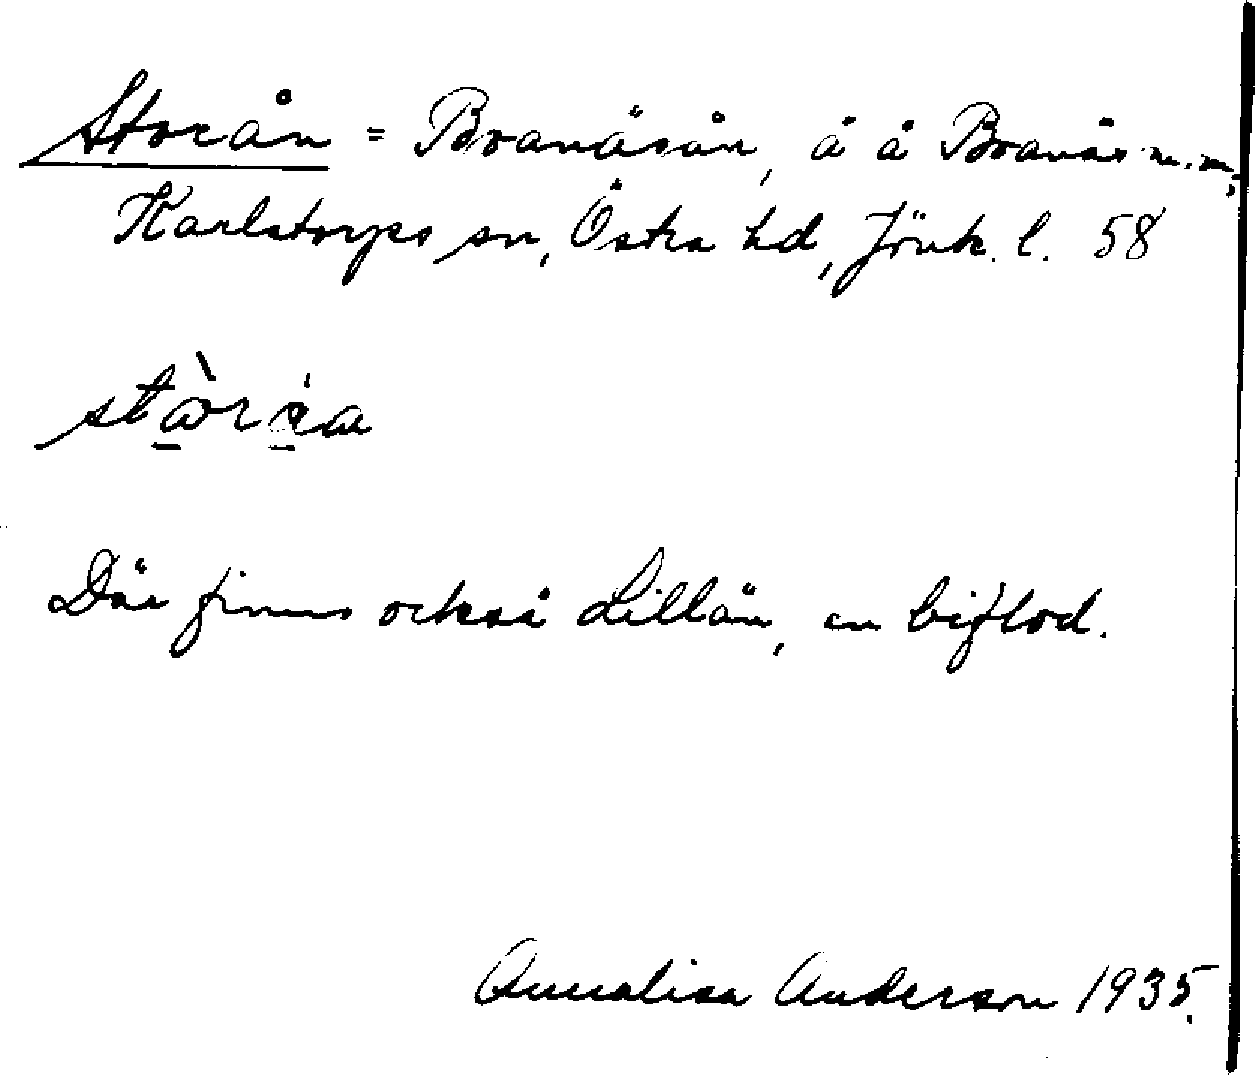 Storån = Branäsån, å å Branäs m.m.,
Karlstorps sn, Östra hd, Jönk. l. 58
Där finns också Lillån, en biflod.
Annalisa Anderson 1935.